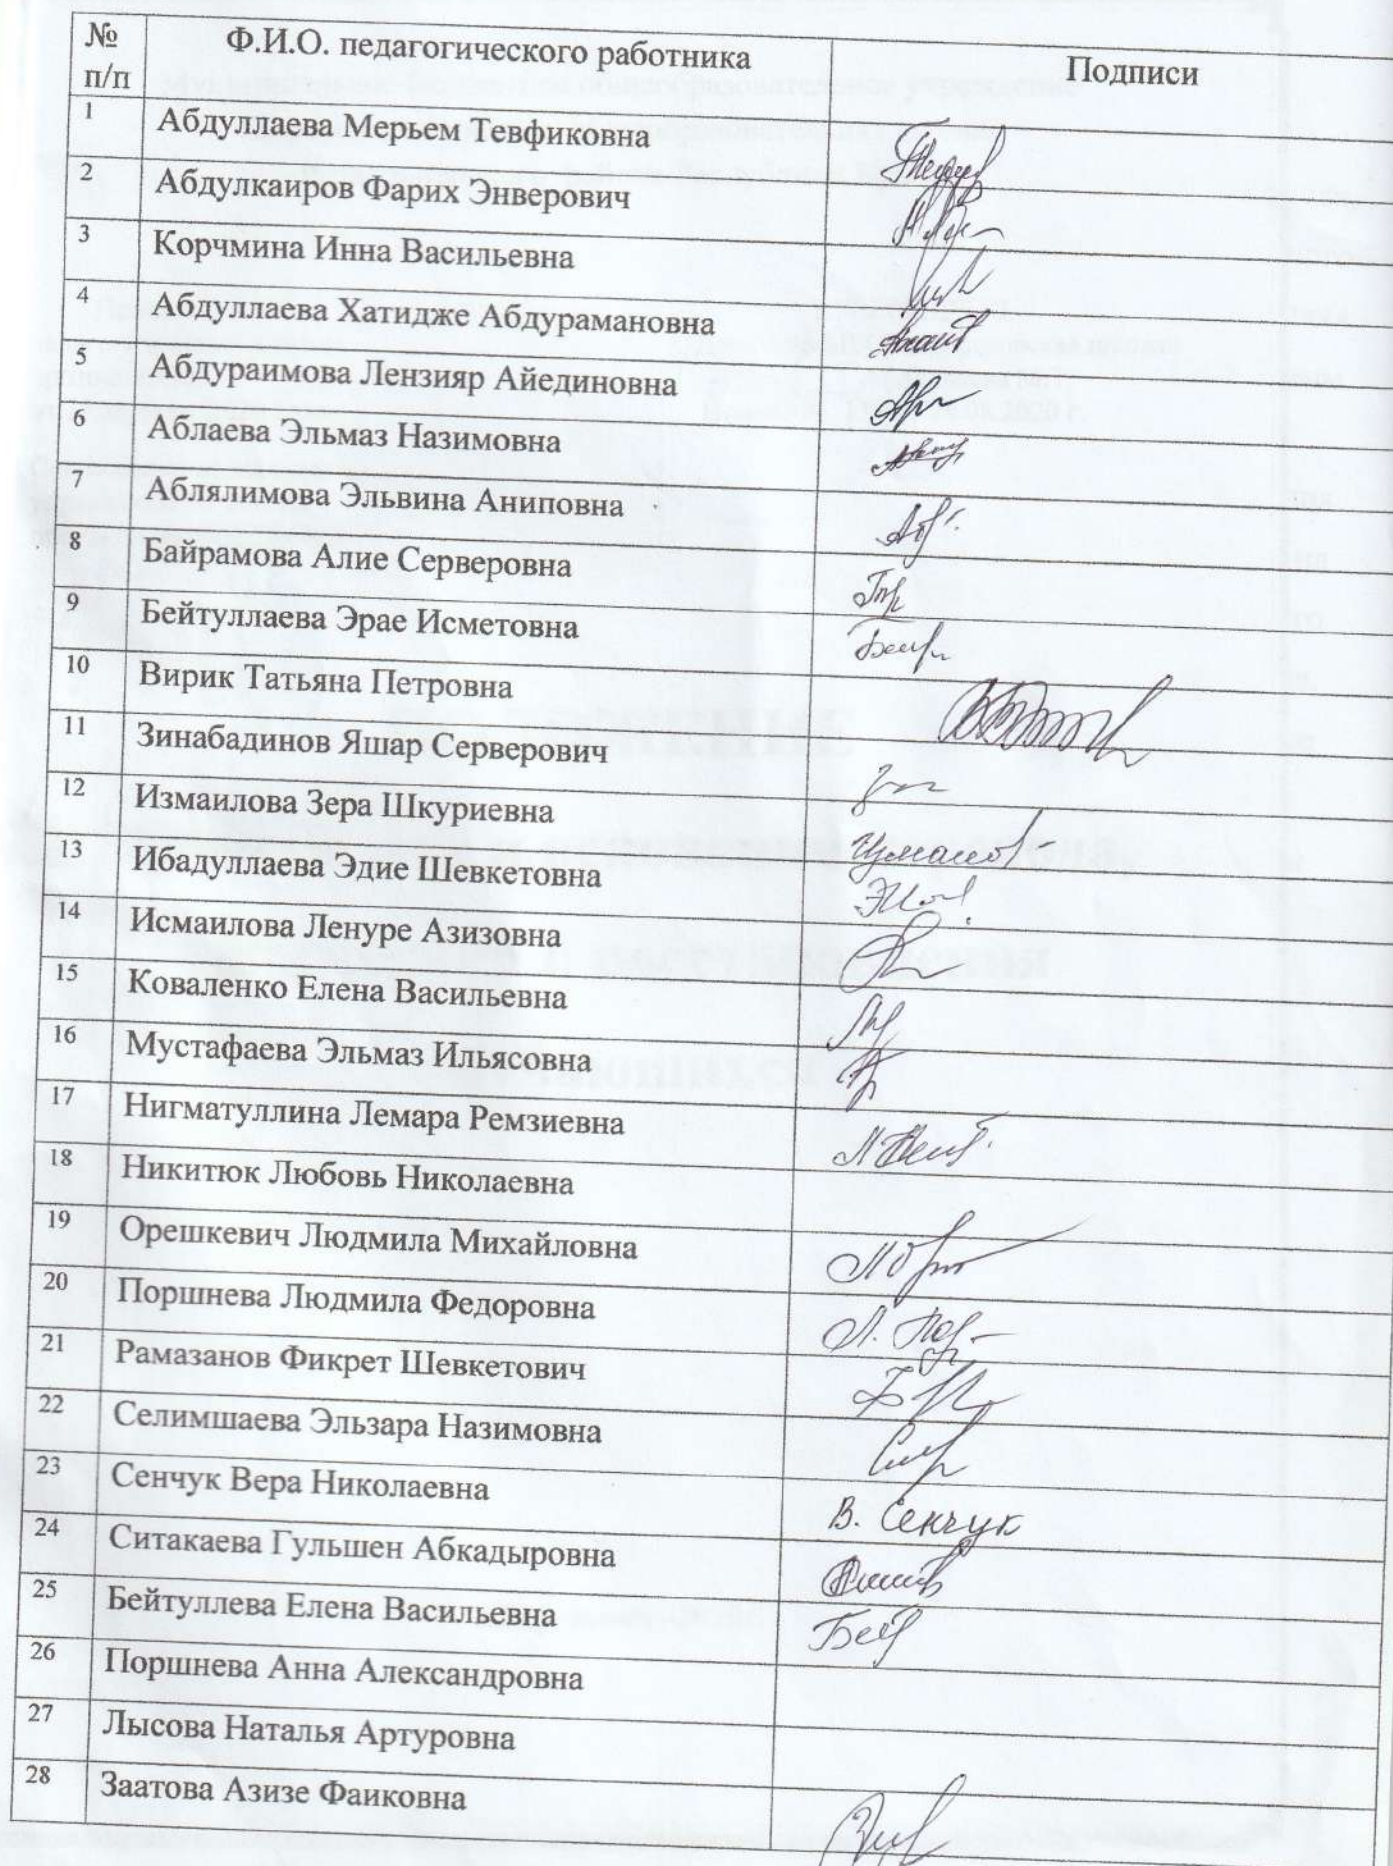 № п/п Ф.И.О. педагогического работника Подписи
1 Абдуллаева Мерьем Тевфиковна
2 Абдулкаиров Фарих Энверович
3 Корчмина Инна Васильевна
4 Абдуллаева Хатидже Абдурамановна
5 Абдураимова Лензияр Айединовна
6 Аблаева Эльмаз Назимовна
7 Аблялимова Эльвина Аниповна
8 Байрамова Алие Серверовна
9 Бейтуллаева Эрае Исметовна
10 Вирик Татьяна Петровна
11 Зинабадинов Яшар Серверович
12 Измаилова Зера Шкуриевна
13 Ибадуллаева Эдие Шевкетовна
14 Исмаилова Ленуре Азизовна
15 Коваленко Елена Васильевна
16 Мустафаева Эльмаз Ильясовна
17 Нигматуллина Лемара Ремзиевна
18 Никитюк Любовь Николаевна
19 Орешкевич Людмила Михайловна
20 Поршнева Людмила Федоровна
21 Рамазанов Фикрет Шевкетович
22 Селимшаева Эльзара Назимовна
23 Сенчук Вера Николаевна В. Сенчук
24 Ситакаева Гульшен Абкадыровна
25 Бейтуллева Елена Васильевна
26 Поршнева Анна Александровна
27 Лысова Наталья Артуровна
28 Заатова Азизе Фаиковна